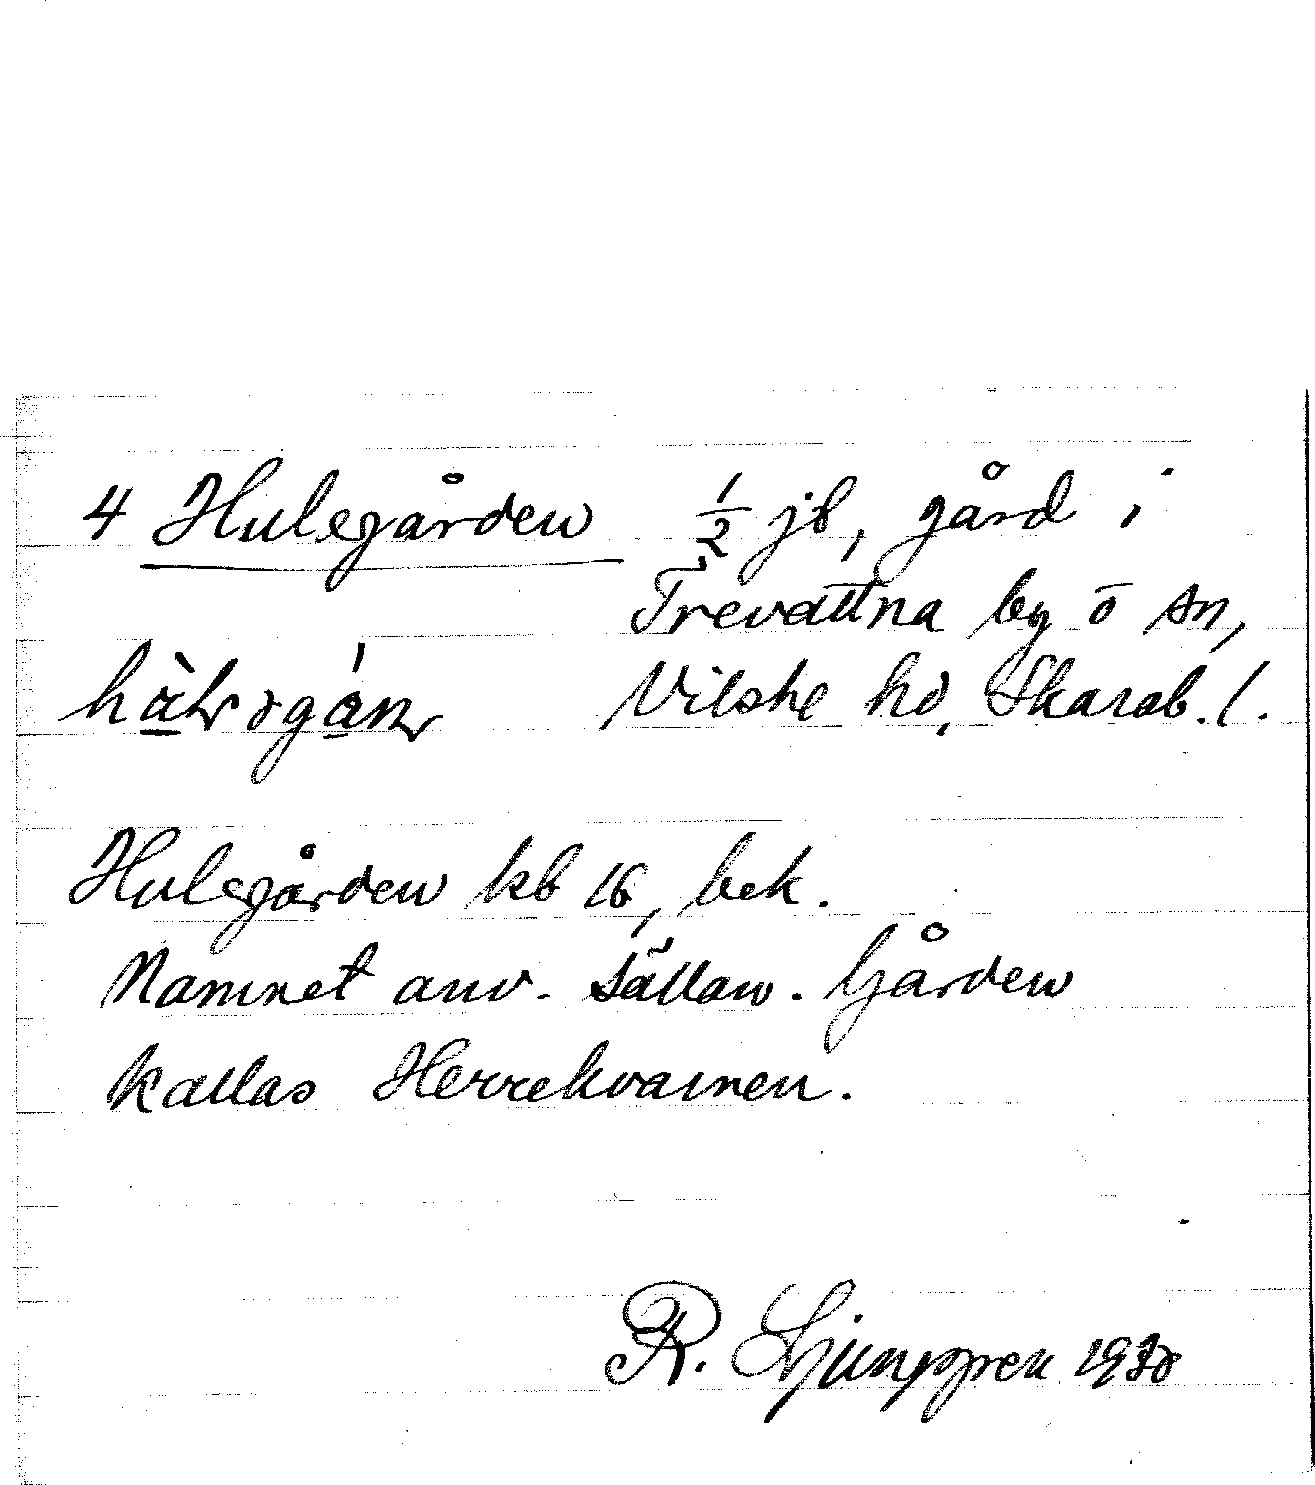 4 Hulegården ½ jb, gård i
Trevattna by o sn,
Vilske hd, Skarab. l.
Hulegården kb 16, bek.
Namnet anv. sällan. Gården
kallas Herrekvarnen.
R. Ljunggren 1930